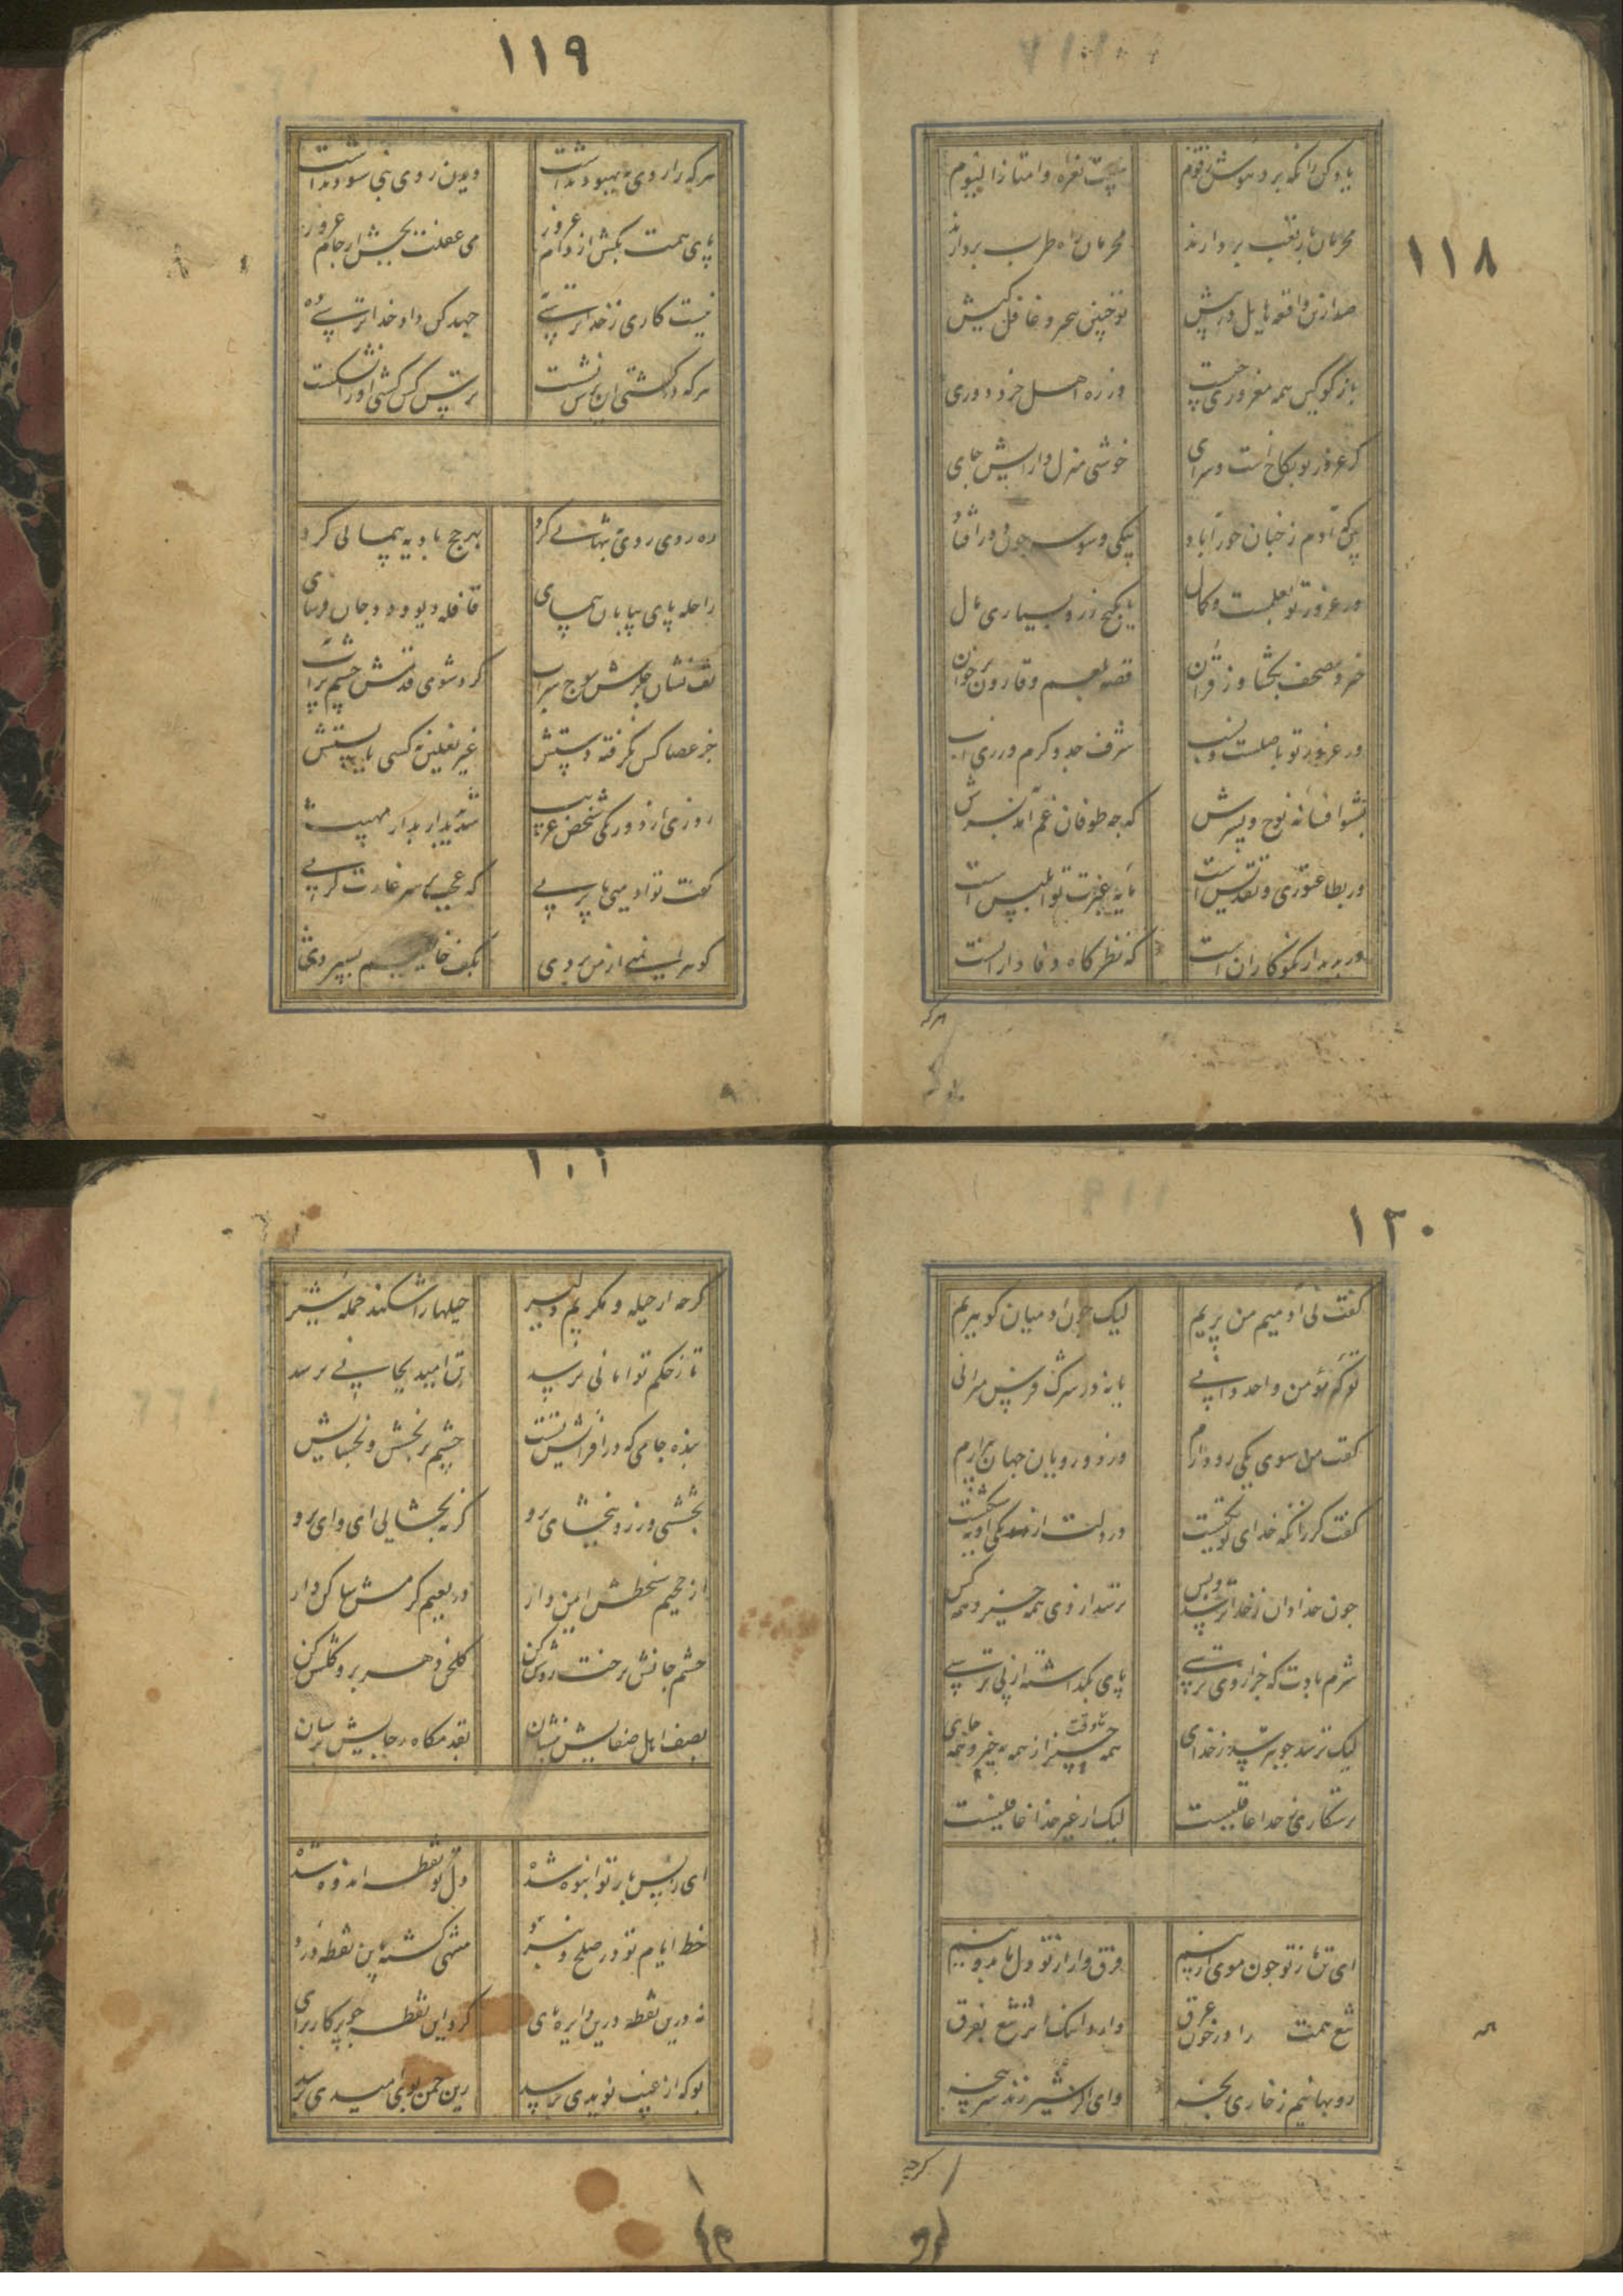 ١١٨
یاد کن زانکه برد هوش ز قوم    بیت نغره وامتازوا الیوم
محرمان بار تعب بردارند    مجرمان راه طرب بردارند
صد ازین واقعه هایل در پیش    تو چنین بیخبر و غافل کیش
باز گو کین همه مغروری چیست    وز ره اهل خرد دوری
گر غرور تو بکاخ است و سرای    خوشی منزل و آرایش جای
بین که آدم ز جنان خورآباد    بیکی وسوسه چون دور افتاد
ور غرور تو بعلمست و کمال    یا بگنج زر و بسیاری مال
خیز و مصحف بگشا وز قرآن    قصه بلعم و قارون برخوان
ور غرور تو باصلست و نسب    شرف جد و کرم ورزی اب
بشنو افسانه نوح و پسرش    که چه طوفان غم آمد بسرش
ور بطاعتوری و تقدیس است    مایه عبرت تو ابلیس است
ور بدیدار نکوکاران است    که نظرگاه وفاداران است
هرکه
١١٩
هرکه را روی به بهبود نداشت    دیدن روی نبی سود نداشت
پای همت بکش از دام غرور    می غفلت مچش از جام غرور
نیست کاری ز خداترسی به    جهد کن داد خداترسی ده
هرکه در کشتی این ترس نشست    ترس کس کشتی او را نشکست
ره روی روی بتنهایی کرد    بهر حج بادیه پیمایی کرد
راحله پای بیابان پیمای    قافله دیو و دد جان فرسای
تف نشان جگرش موج سراب    گرد شوی قدمش چشم پر آب
جز عصا کس نگرفته دستش    غیر نعلین نه کسی پابستش
روزی از دور یکی شخص غریب    شد پدیدار بدیدار مهیب
گفت تو آدمیی یا پریی    که عجب بر سر غارتگریی
گوهر ایمنی از من بردی    بکف خایفیم بسپردی
١٢٠
گفت نی آدمیم من پریم    لیک چون آدمیان گوهریم
تو که مؤمن واحد دانی    یا نه در شرک فرس میرانی
گفت من سوی یکی رو دارم    وز دو رویان جهان بیزارم
گفت گر زانکه خدای تو یکیست    در دلت از یکی او نه شکیست
چون خدادان ز خدا ترسد و بس    ترسد از وی همه چیز و همه کس
شرم بادت که جز از وی ترسی    پای بگذاشته از پی ترسی
لیک ترسد چو بترسد ز خدای    همه چیز از همه به خیر و همه جای
رستگاری ز خدا عاقلیست    لیک از غیر خدا غافلیست
ای تن ما ز تو چون موی از بیم    فرق وار از تو دل ما بدونیم
تیغ همت را در خون غرق    دارد اینک اثر تیغ بفرق
روبهانیم ز خاری رنجه    وای اگر شیر زند سرپنجه
گرچه
گرچه از حیله و مکریم دلیر    حیلها را شکند حمله شیر
تا ز حکم تو امانی نرسد    تن امید بجانی نرسد
بنده جامی که در افزایش تست    چشم بر بخشش و بخشایش تست
بخششی ورز و ببخشای برو    گر نبخشایی ای وای برو
از جحیم سخطش ایمن دار    در نعیم کرمش ساکن دار
چشم جانش برخت روشن کن    گلخن دهر برو گلشن کن
بصف اهل صفایش بنشان    بقدمگاه رجایش برسان
ای ز بس بار تو انبوه شده    دل تو نقطه اندوه شده
خط ایام تو در صلح و نبرد    منتهی گشته باین نقطه درد
نه درین نقطه درین دایره پای    گرد این نقطه چو پرگار برای
بو که از غیب نویدی برسد    زین چمن بوی امیدی برسد